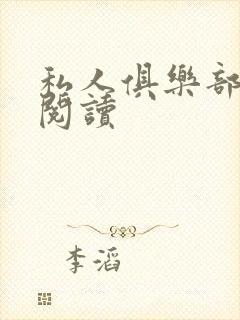 私人俱樂部
閱讀
李滔